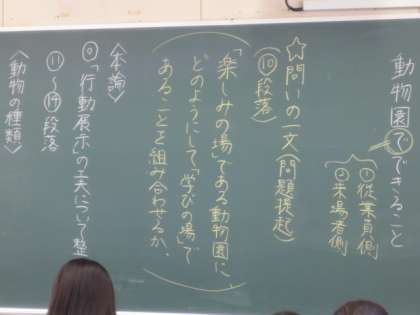 動物園でできること
①従業員側
②来場者側
☆問いの一文(問題提起)
(⑩段落)
「楽しみの場」である動物園に、
どのようにして「学びの場」で
あることを組み合わせるか。
〈本論〉
⑨「行動展示」の工夫について整
⑪〜⑭段落
〈動物の種類〉